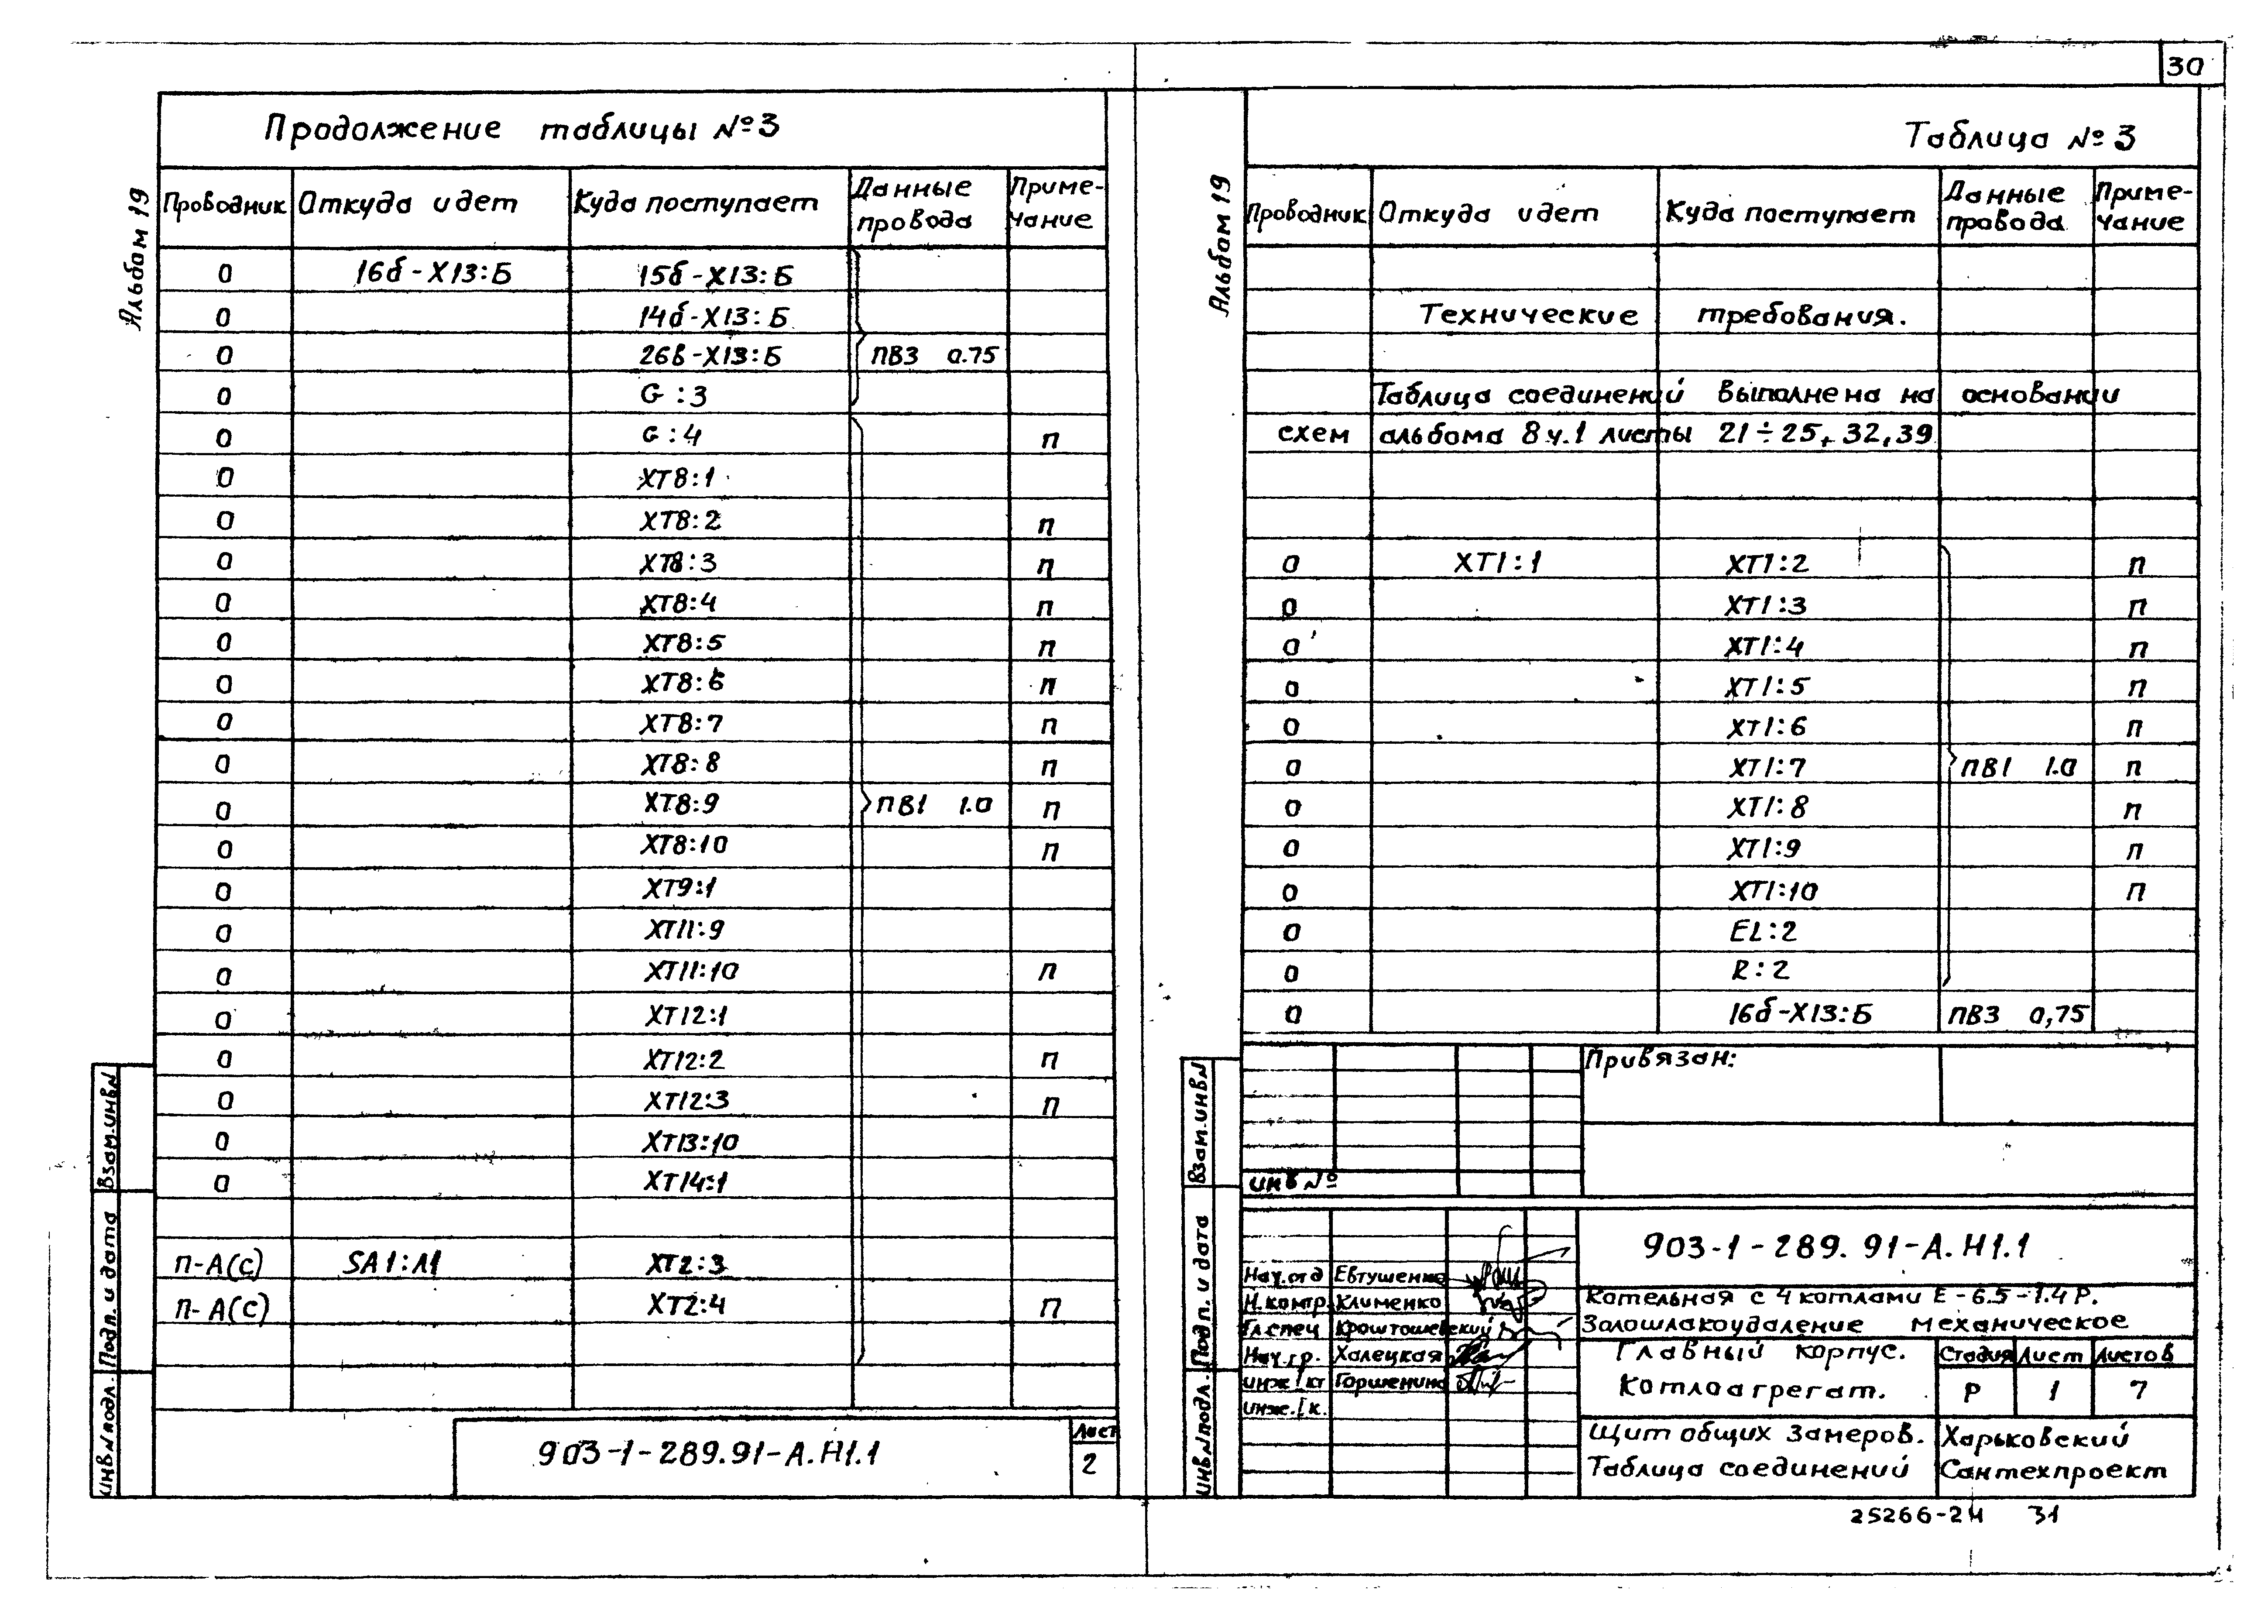 30
Продолжение таблицы №3
Альбом 19
Проводник Откуда идет Куда поступает Данные провода Примечание
0 16б-Х13:Б 15б-Х13:Б
0 14б-Х13:Б
0 26в-Х13:Б ПВ3 0.75
0 G:3
0 G:4 п
0 ХТ8:1
0 ХТ8:2 п
0 ХТ8:3 п
0 ХТ8:4 п
0 ХТ8:5 п
0 ХТ8:6 п
0 ХТ8:7 п
0 ХТ8:8 п
0 ХТ8:9 ПВ1 1.0 п
0 ХТ8:10 п
0 ХТ9:1
0 ХТ11:9
0 ХТ11:10 п
0 ХТ12:1
0 ХТ12:2 п
0 ХТ12:3 п
0 ХТ13:10
0 ХТ14:1
П-А(С) SA1:Л1 ХТ2:3
П-А(С) ХТ2:4 П
Взам.инв№
Подп. и дата
инв№подл.
903-1-289.91-А.Н1.1
Лист
2
Таблица №3
Альбом 19
Проводник Откуда идет Куда поступает Данные провода Примечание
Технические требования.
Таблица соединений выполнена на основании
схем альбома 8 ч.1 листы 21÷25, 32, 39
0 ХТ1:1 ХТ1:2 п
0 ХТ1:3 п
0 ХТ1:4 п
0 ХТ1:5 п
0 ХТ1:6 п
0 ХТ1:7 ПВ1 1.0 п
0 ХТ1:8 п
0 ХТ1:9 п
0 ХТ1:10 п
0 EL:2
0 R:2
0 16б-Х13:Б ПВ3 0,75
Привязан:
инв №
Взам.инв№
Подп. и дата
инв№подл.
903-1-289.91-А.Н1.1
Нач.отд Евтушенко
Н.контр. Клименко
Гл.спец Кроштошевский
Нач.гр. Халецкая
инж I кт Горшенина
инж.I к.
Котельная с 4 котлами Е-6.5-1.4Р.
Золошлакоудаление механическое
Главный корпус.
Котлоагрегат.
Стадия Лист Листов
Р 1 7
Щит общих замеров.
Таблица соединений
Харьковский
Сантехпроект
25266-24 31